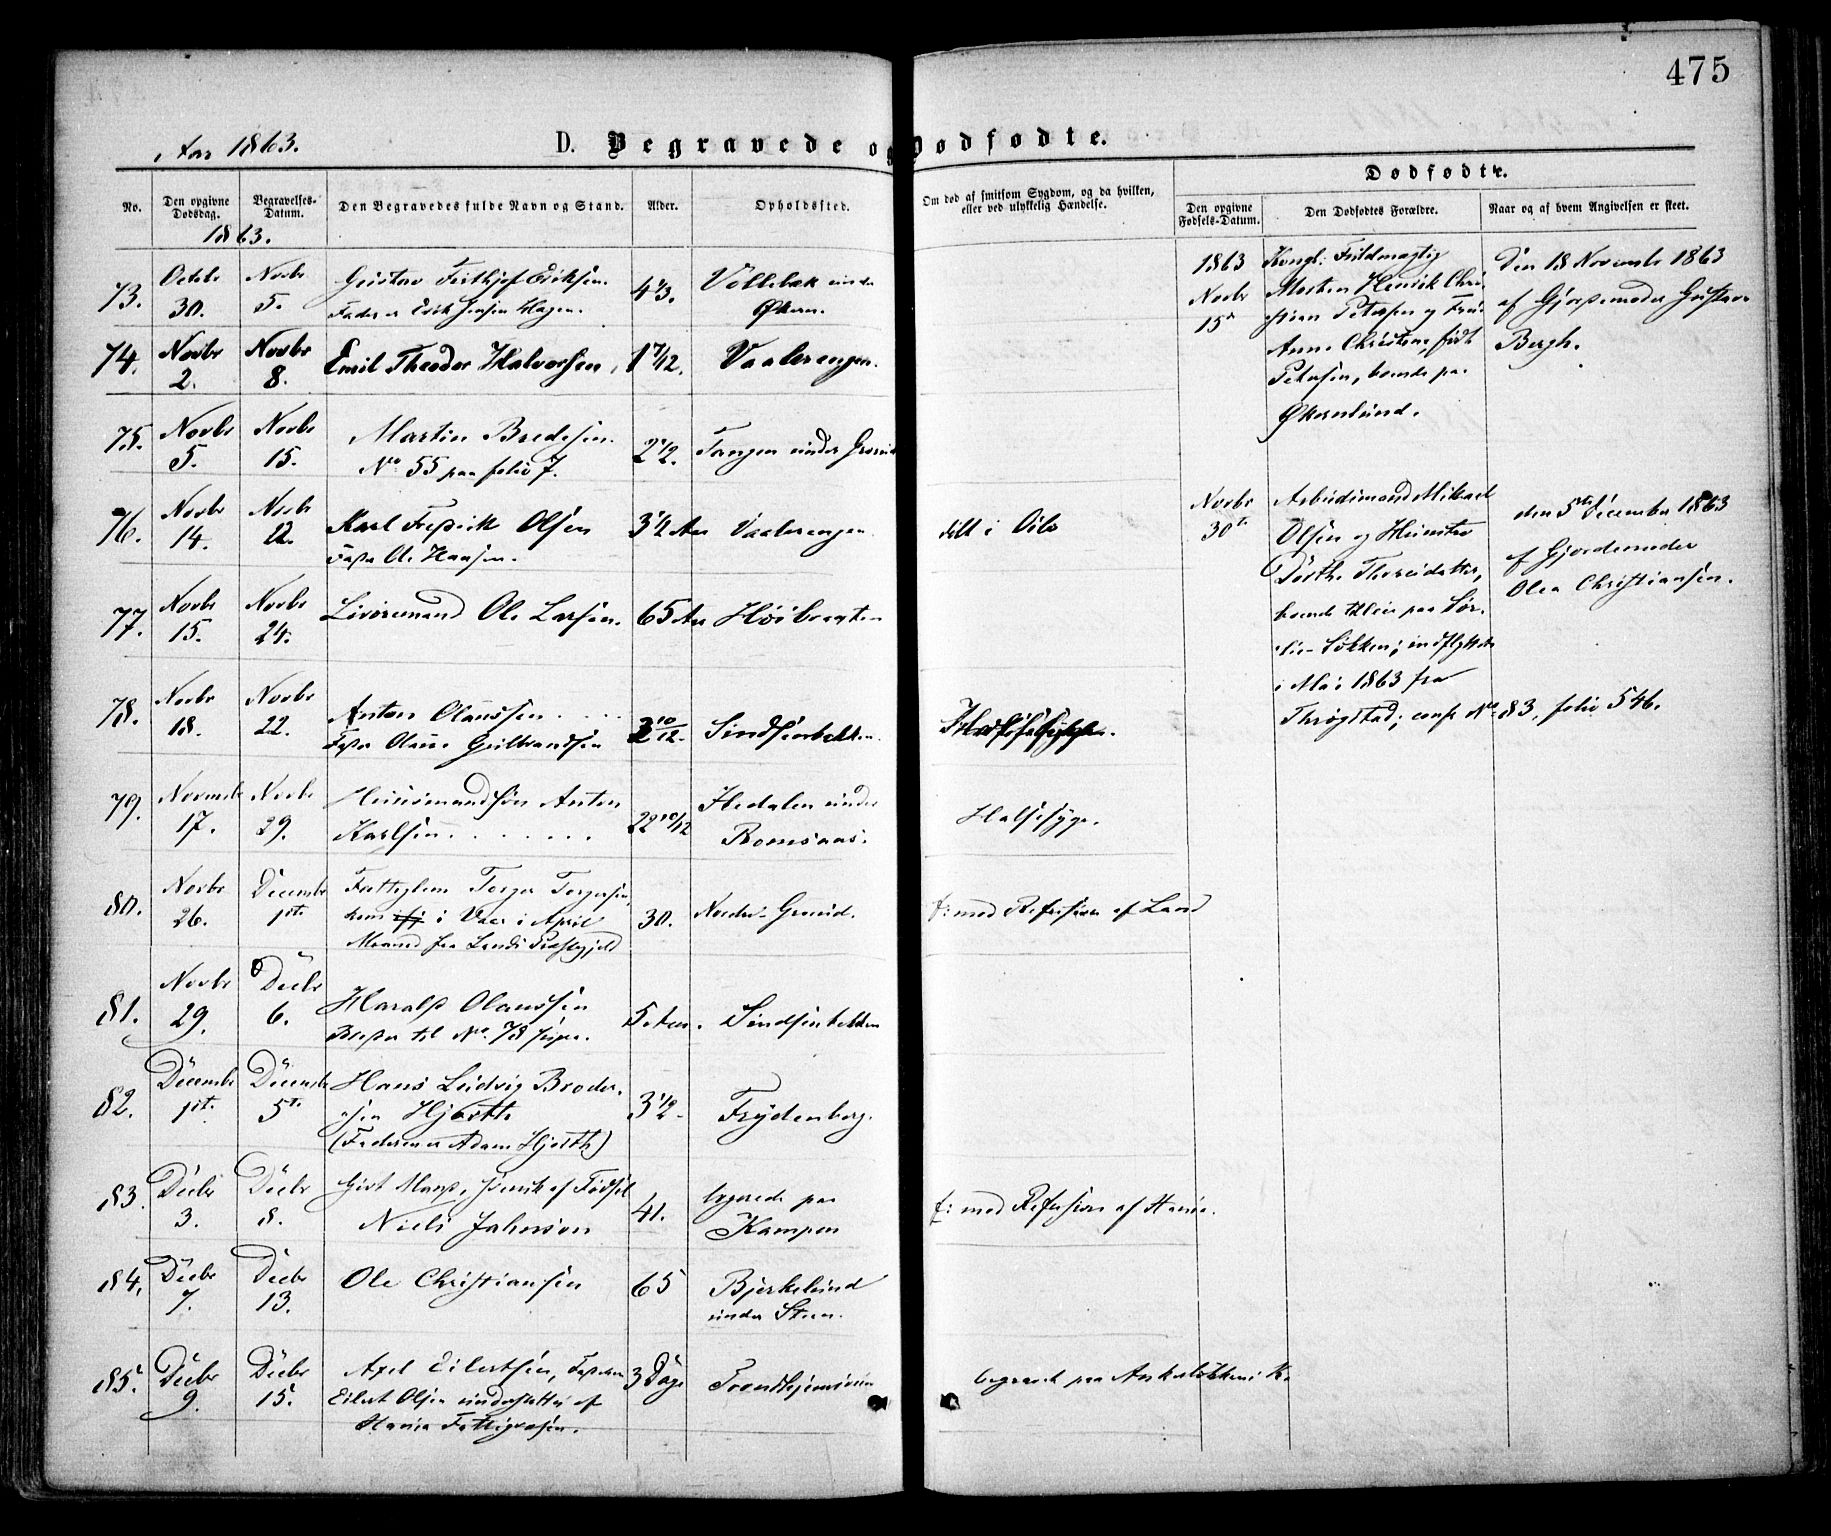 475
i Aar 1863.
D. Begravede og Dødfødte.
No.
Den opgivne Dødsdag.
Begravelses-Datum.
Den Begravedes fulde Navn og Stand.
Alder.
Opholdssted.
Om død af smitsom Sygdom, og da hvilken,
eller ved ulykkelig Hændelse.
Dødfødte.
Den opgivne Fødsels-Datum.
Den Dødfødtes Forældre.
Naar og af hvem Angivelsen er skeet.
1863.
73.
Octobr 30.
Novbr 5.
Gustav Frithjof Eriksen.
Fader Erik Jensen Hagen.
4 1/3.
Vollebæk under
Økern.
74.
Novbr 2.
Novbr 8.
Emil Theodor Halvorsen,
1 7/12.
Vaalerengen.
75.
Novbr 5.
Novbr 15.
Martin Bredesen.
No 55 paa folio 7.
2 1/2.
Tangen under Grorud
76.
Novbr 14.
Novbr 22.
Karl Fredrik Olsen
Fader Ole Hansen.
3 1/2 Aar
Vaalerengen.
død i Oslo
77.
Novbr 15.
Novbr 24.
Ole Larsen.
65 Aar
Høibraaten
78.
Novbr 18.
Novbr 22.
Anton Olaussen . . . .
Fader Olaus Gulbrandsen
2 10/12.
Sindsenbekken.
79.
Novembr 17.
Novbr 29.
Huusmandssøn Anton
Karlsen . . . . . . .
22 10/12
Ibedalen under
Romsaas.
Halssyge.
80.
Novbr 26.
Decembr 1ste
Fattiglem Torger Torgersen,
kom i Vaar i April
Maaned fra Lands Præstegjeld
30.
Nordre Grorud.
f: med Refusion af Land
81.
Novbr 29.
Decbr 6.
Harald Olaussen
Broder til No. 78
5 Aar.
Sindsenbekken
82.
Decembr 1st.
Decembr 5t.
Hans Ludvig Broder-
sen Hjorth
(Faderen er Adam Hjorth)
3 1/2.
Frydenberg.
83.
Decbr 3.
Decbr 8.
Gift Mand, svensk af Fødsel
Niels Johnson
41.
boende paa
Kampen
f: med Refusion af Staten.
84.
Decbr 7.
Decbr 13.
Ole Christiansen
65
Bjerkelund
under Steen.
85.
Decbr 9.
Decbr 15.
Axel Eilertsen, Faderen
Eilert Olsen understøttes af
Fattigvæsen.
3 Dage
Trondhjemsveien
begravet paa Ankerløkken i K.
1863
Novbr
15de
Kongl: Fuldmægtig
Morten Henrik Chri-
stian Petersen og Frue
Anne Christine, født
Petersen, boende paa
Økernlund.
Den 18 Novembr 1863
af Gjordemoder Gustava
Bergh.
Novbr
30te
Arbeidsmand Mikael
Olsen og Hustru
Dorthe Thoresdatter,
boende tilleie paa Sør-
lie-Løkken; indflyttede
i Mai 1863 fra
Thrøgstad; conf No 83, folio 546.
den 5te December 1863
af Gjordemoder
Olea Christiansen.